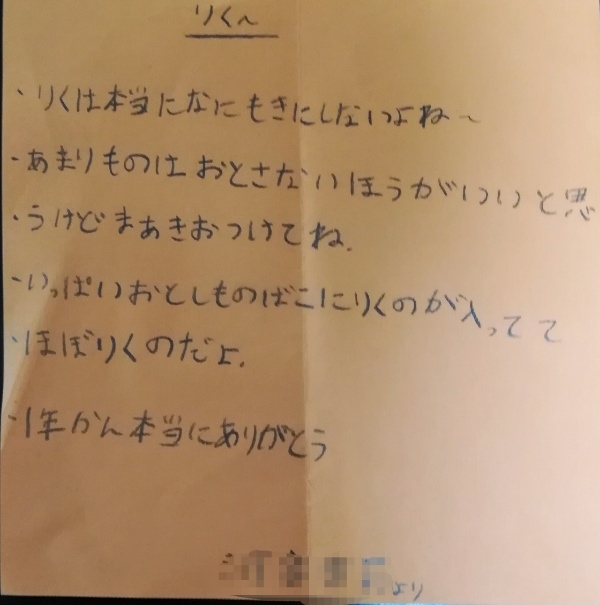 りくへ
・りくは本当になにもきにしないよね〜
・あまりものはおとさないほうがいいと思
・うけどまあきおつけてね.
・いっぱいおとしものばこにりくのが入ってて
・ほぼりくのだよ.
・1年かん本当にありがとう
より